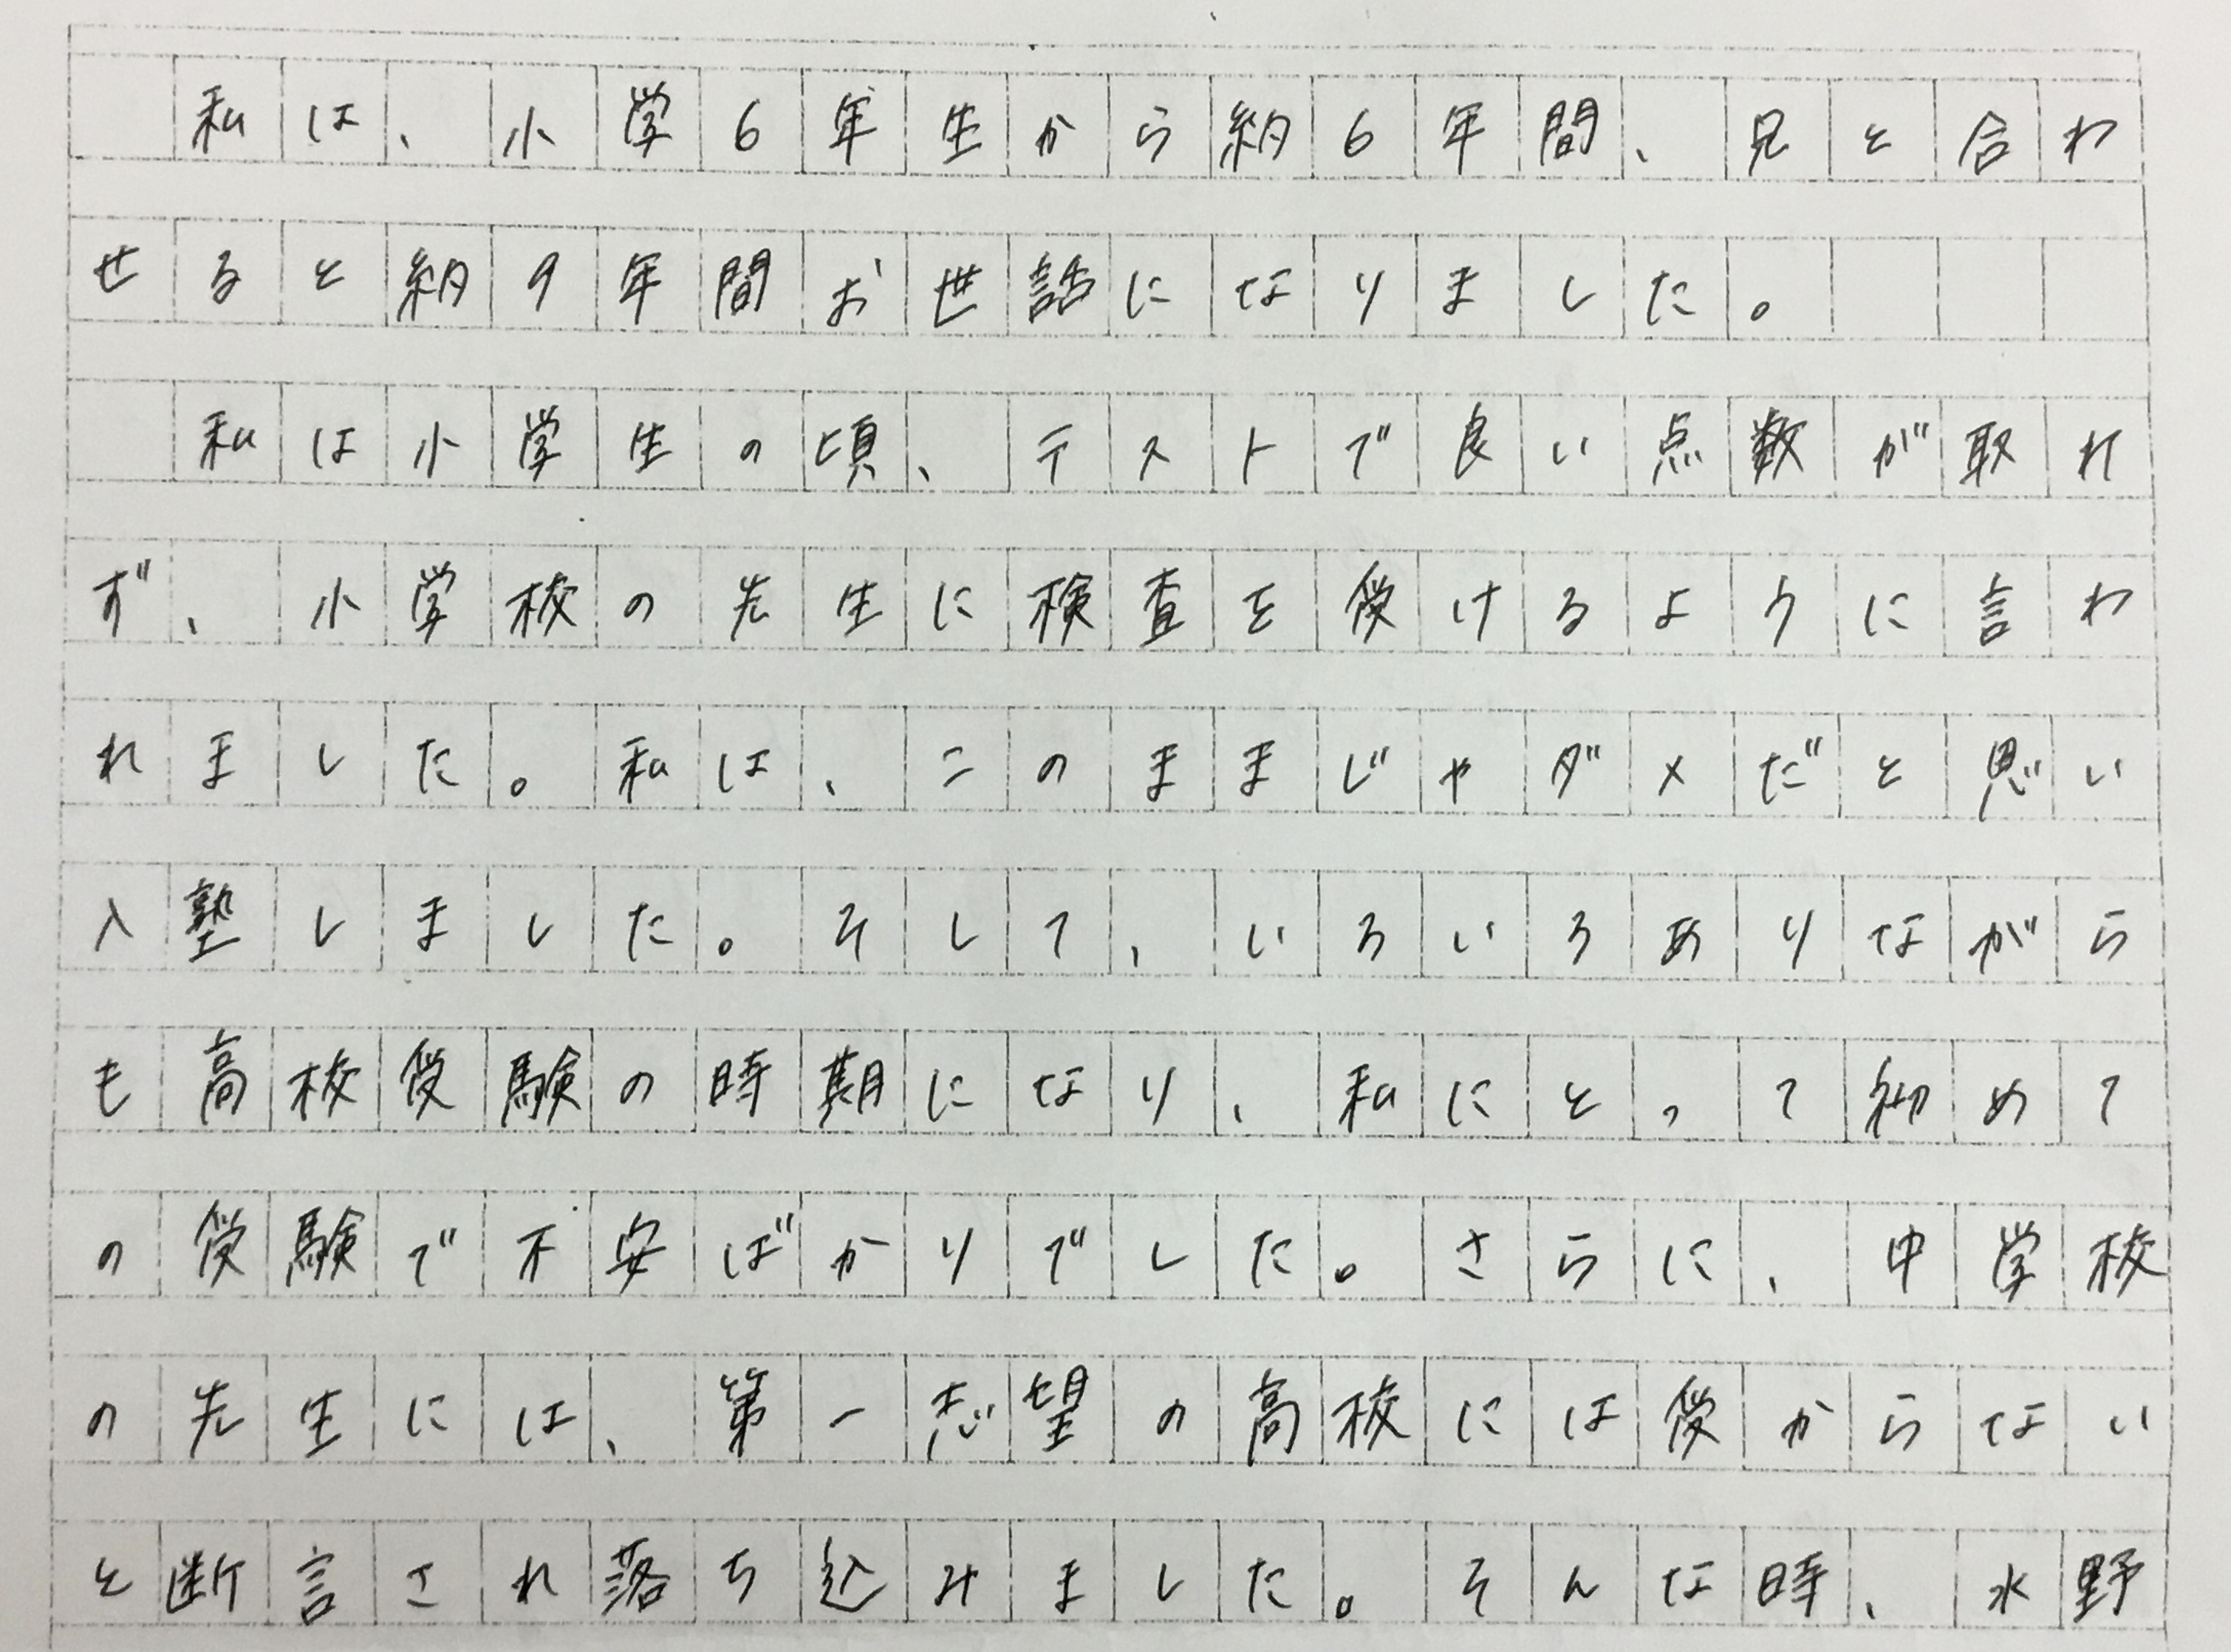 私は、小学6年生から約6年間、兄と合わ
せると約9年間お世話になりました。
私は小学生の頃、テストで良い点数が取れ
ず、小学校の先生に検査を受けるように言わ
れました。私は、このままじゃダメだと思い
入塾しました。そして、いろいろありながら
も高校受験の時期になり、私にとって初めて
の受験で不安ばかりでした。さらに、中学校
の先生には、第一志望の高校には受からない
と断言され落ち込みました。そんな時、水野